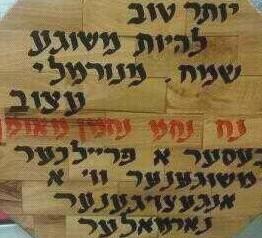 יותר טוב
להיות משוגע
שמח, מנורמלי
עצוב
נח נחמ נחמן מאומן
בעסער א פריילכער
משוגענער ווי א
אנגעצויגענער
נארמאלער